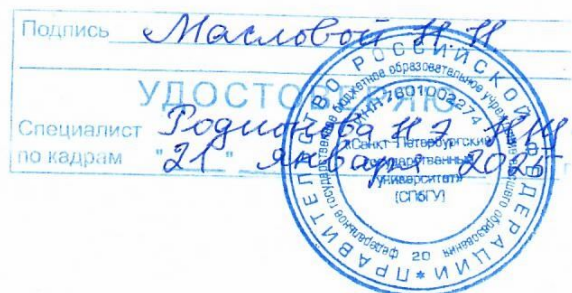 Подпись Масловой Н.Н.
УДОСТОВЕРЯЮ
Специалист Родионова Н.Э.
по кадрам "21" января 2025 г.
ПРАВИТЕЛЬСТВО РОССИЙСКОЙ ФЕДЕРАЦИИ *
федеральное государственное бюджетное образовательное учреждение высшего образования
ИНН 7801002274
«Санкт-Петербургский
государственный
университет»
(СПбГУ)
20